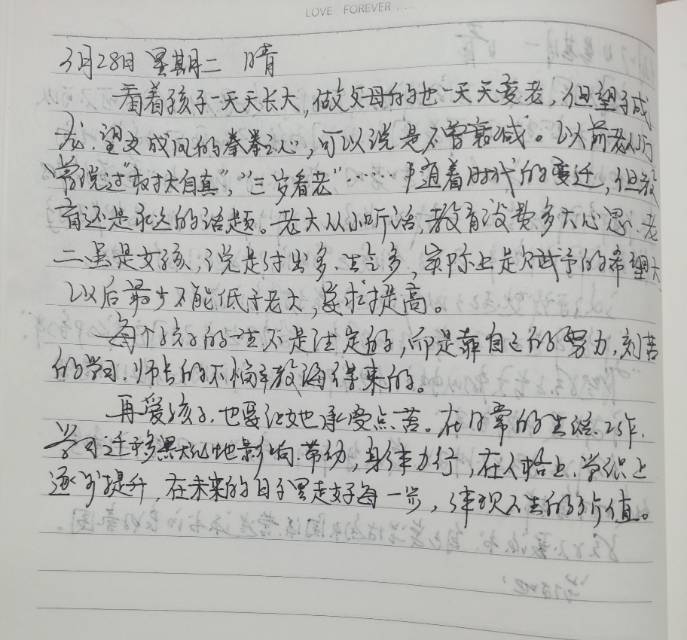 LOVE FOREVER...
3月28日 星期二 晴
看着孩子一天天长大,做父母的也一天天变老,但望子成
龙、望女成凤的拳拳之心,可以说是不曾衰减。以前老人们
常说过"树大自直","三岁看老"……随着时代的变迁,但教
育还是永远的话题。老大从小听话,教育没费多大心思、老
二虽是女孩,说是付出多、生气多,实际上是赋予的希望大
以后最少不能低于老大,要求提高。
每个孩子的一生不是注定的,而是靠自己的努力,刻苦
的学习,师长的不懈教诲得来的。
再爱孩子,也要让她承受点苦。在日常的生活、工作、
学习迁移默化地影响带动,身体力行,在人格上、学识上
逐步提升,在未来的日子里走好每一步,体现人生的价值。